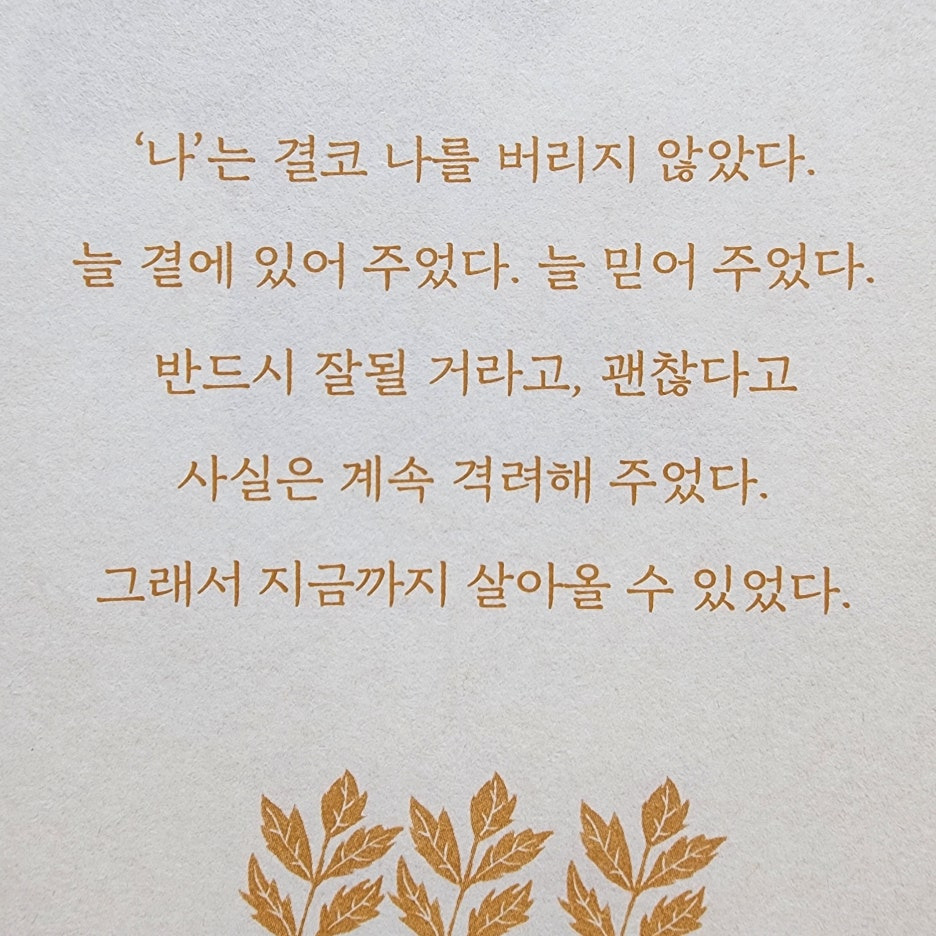 ‘나’는 결코 나를 버리지 않았다.
늘 곁에 있어 주었다. 늘 믿어 주었다.
반드시 잘될 거라고, 괜찮다고
사실은 계속 격려해 주었다.
그래서 지금까지 살아올 수 있었다.